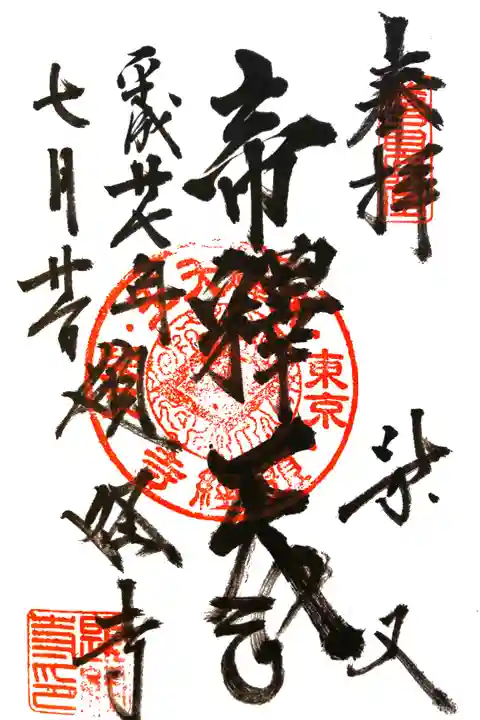 奉拝
柴又
帝釋天
平成廿七年
題経寺
七月廿日
東京